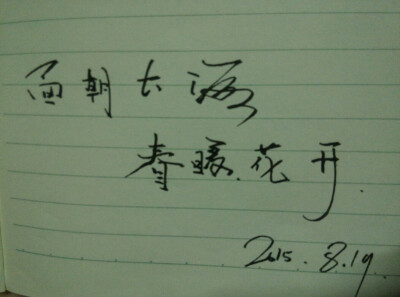 面朝大海
春暖花开
2015.8.19